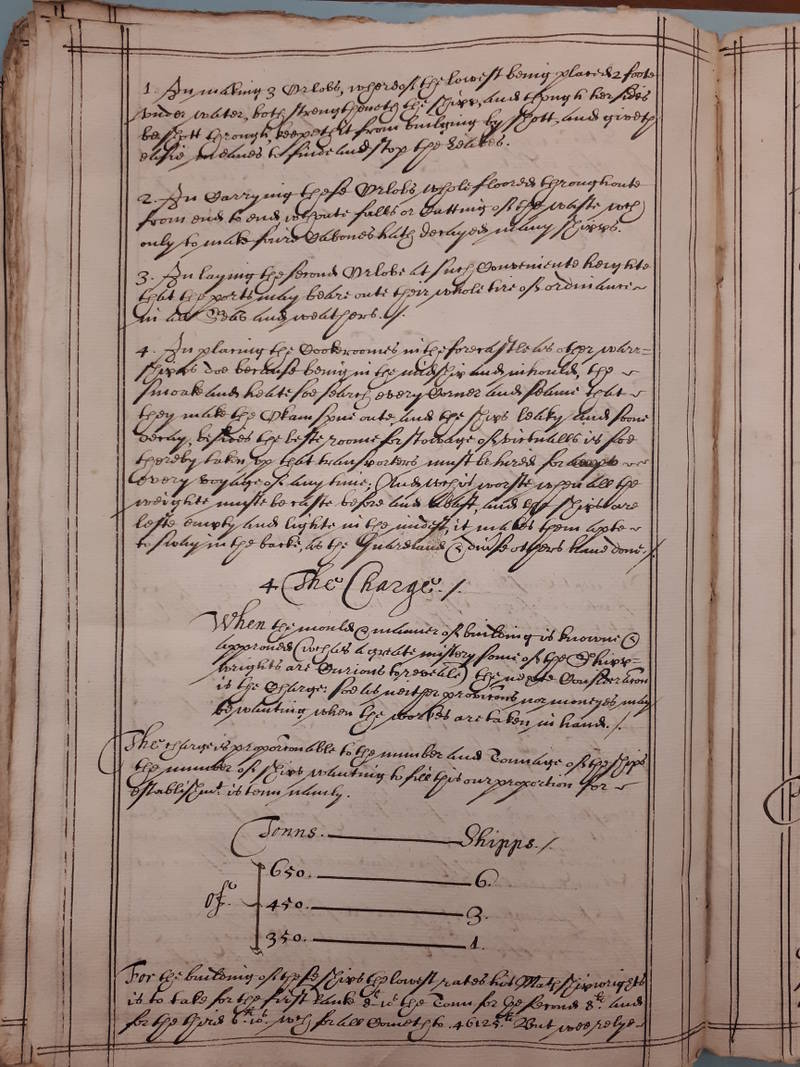 1. In making 3 Orlobs, whereof the lowest being placed 2 foote
under water, both strengtheneth the shipp, and though her sides
be shott through, keepeth it from builging by shott, and giveth
easie meanes to finde and stop the leakes.
2. In Carrying these Orlobs whole floored throughoute
from end to end without falls or Cutting of the waste wch
only to make faire Cabones hath decayed many shipps.
3. In laying the second Orlobe at such Conveniente heyghte
that the ports may beare oute their whole tire of ordinance
in all Seas and weathers. /.
4. In placing the Cookeroomes in the forecastle as other warr=
shipps doe because being in the midshipp and in hould, the
smoake and heate soe search every Corner and seame that
they make the Okam spue oute, and the ships leaky, and soone
decay, besides the beste roome for stowage of victualls is soe
thereby taken up that transporters must be hired for
every voyage of any time; And wch is worste when all the
weighte muste be caste before and abaft, and the ships are
lefte empty and lighte in the midest, it makes them apte
to sway in the backe, as the Guardland & divrse others have done. /
4 The Charge. /.
When the mould & manner of building is knowne &
approved (wch as a greate mistery some of the Shipp=
wrights are Curious to reveale) the nexte Consideracon
is the Charge: soe as neither provicons nor moneyes may
be wanting when the workes are taken in hand. /.
The charge is proportonable to the number and Tonnage of the shipps
the number of ships wanting to fill this our proportion for
establishmt. is tenn namly.
Tonns. Shipps. /
650. 6.
of. 450. 3.
350. 1.
For the building of these ships the lowest rates that Matshipwrights
is to take for the first ranke the Tonn for the second 8li. and
for the third wch for all Cometh to. 46125li. But wee relye